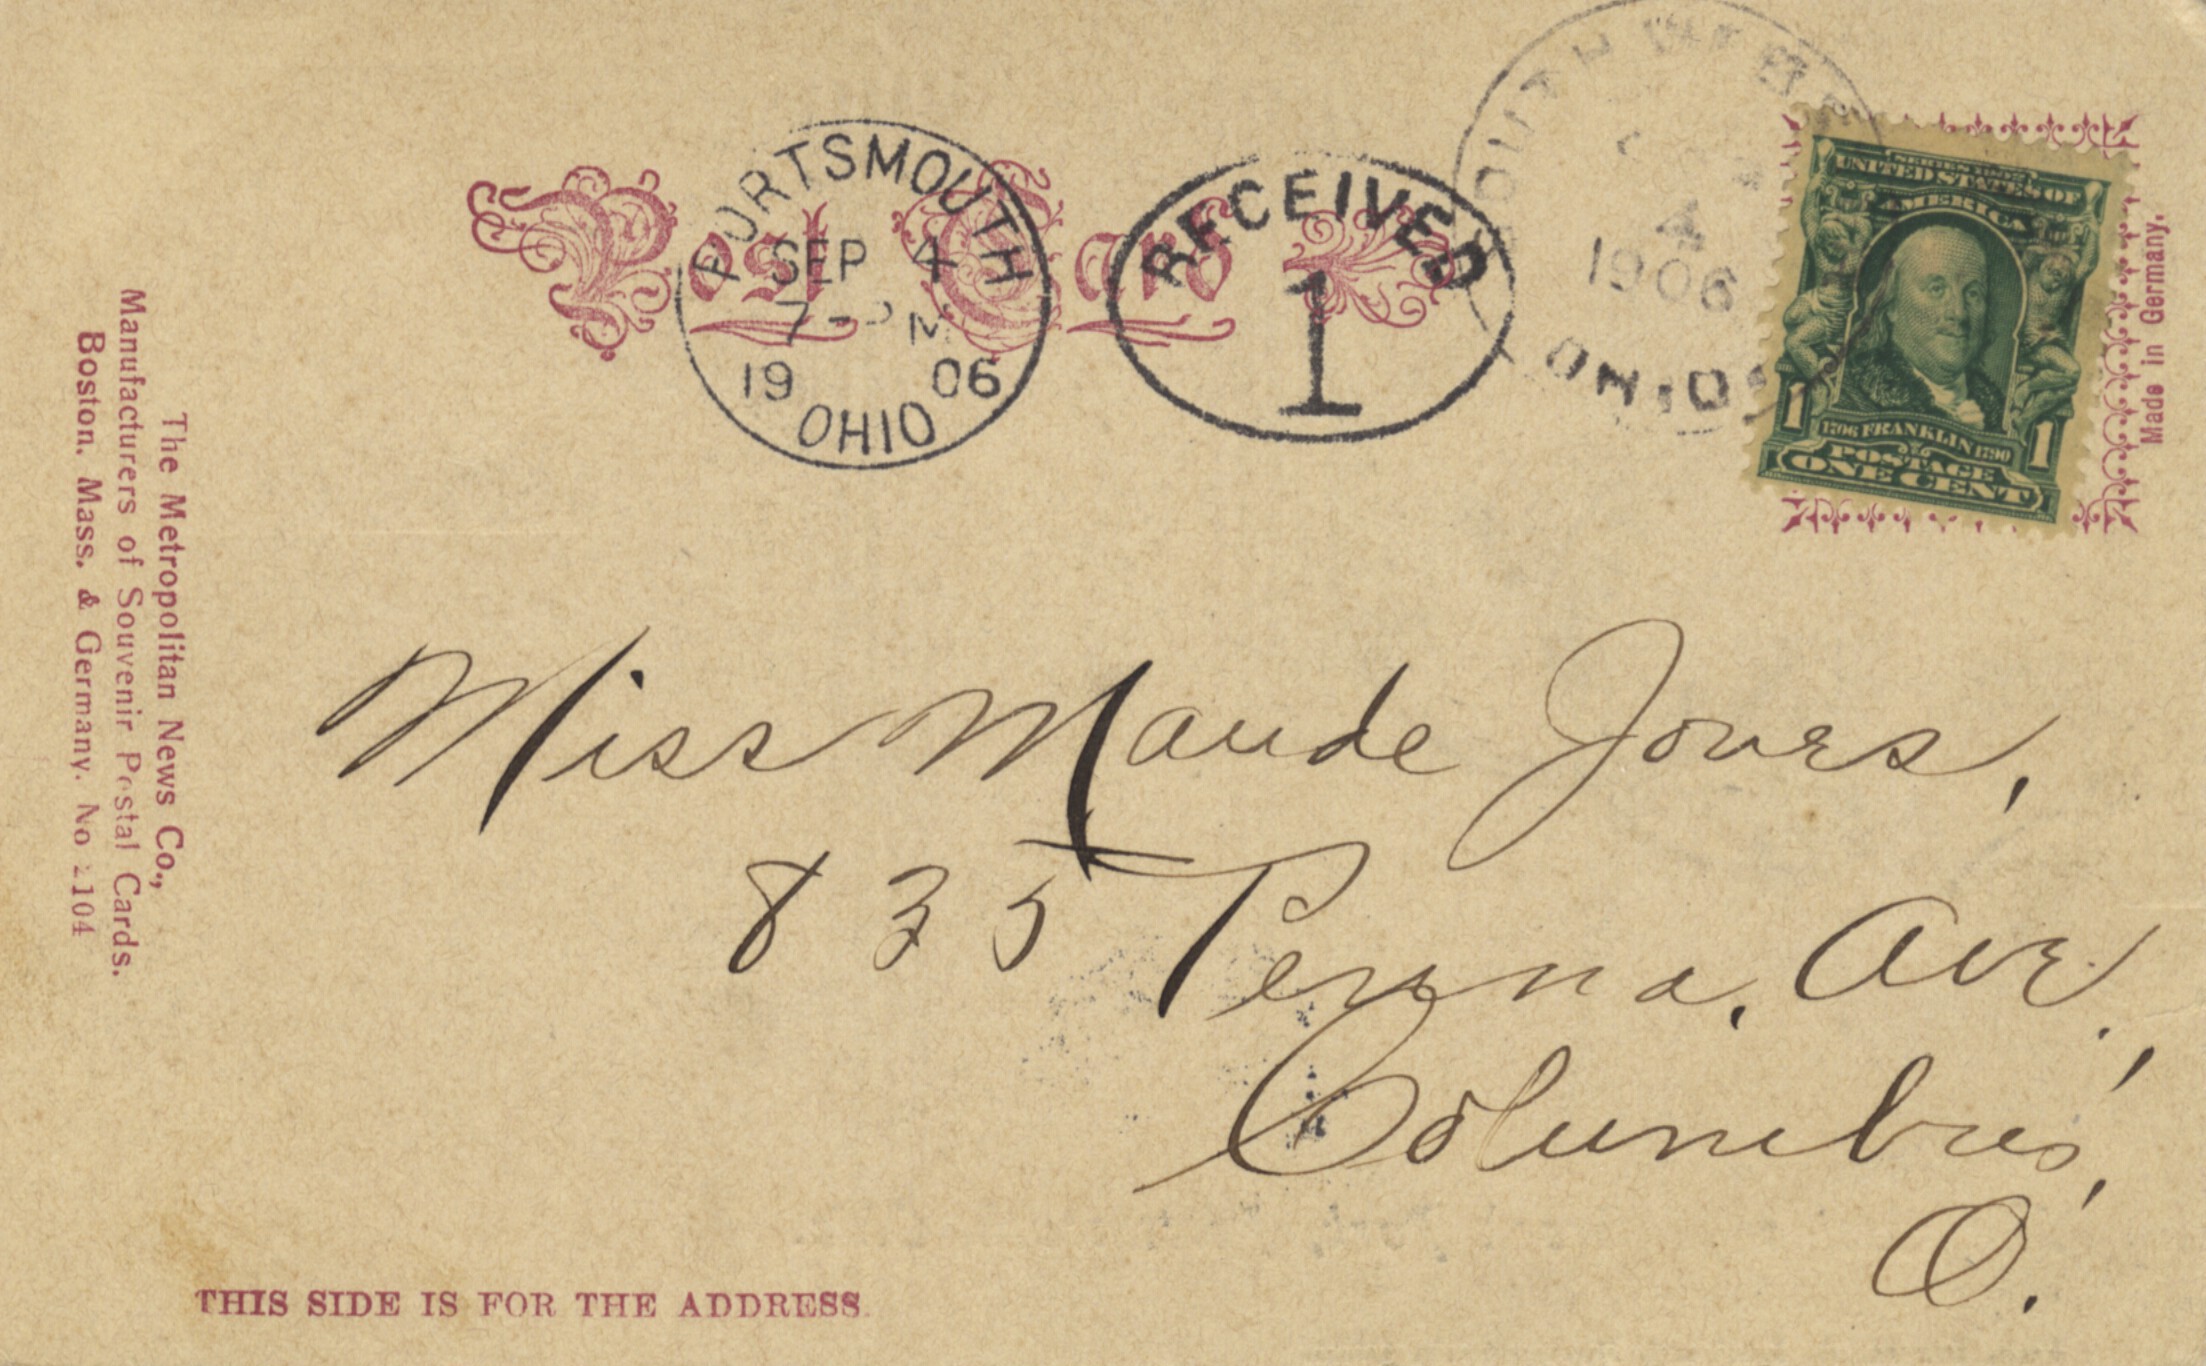 Post Card
PORTSMOUTH
SEP 4
7 - P M
19 06
OHIO
RECEIVED
1
SOUTH
4
1906
OHIO
SERIES 1902
UNITED STATES OF
AMERICA
1706 FRANKLIN 1790
POSTAGE
1 ONE CENT 1
Made in Germany.
The Metropolitan News Co.,
Manufacturers of Souvenir Postal Cards.
Boston, Mass. & Germany. No 2104
Miss Maude Jones,
835 Penna. Ave.,
Columbus,
O.
THIS SIDE IS FOR THE ADDRESS